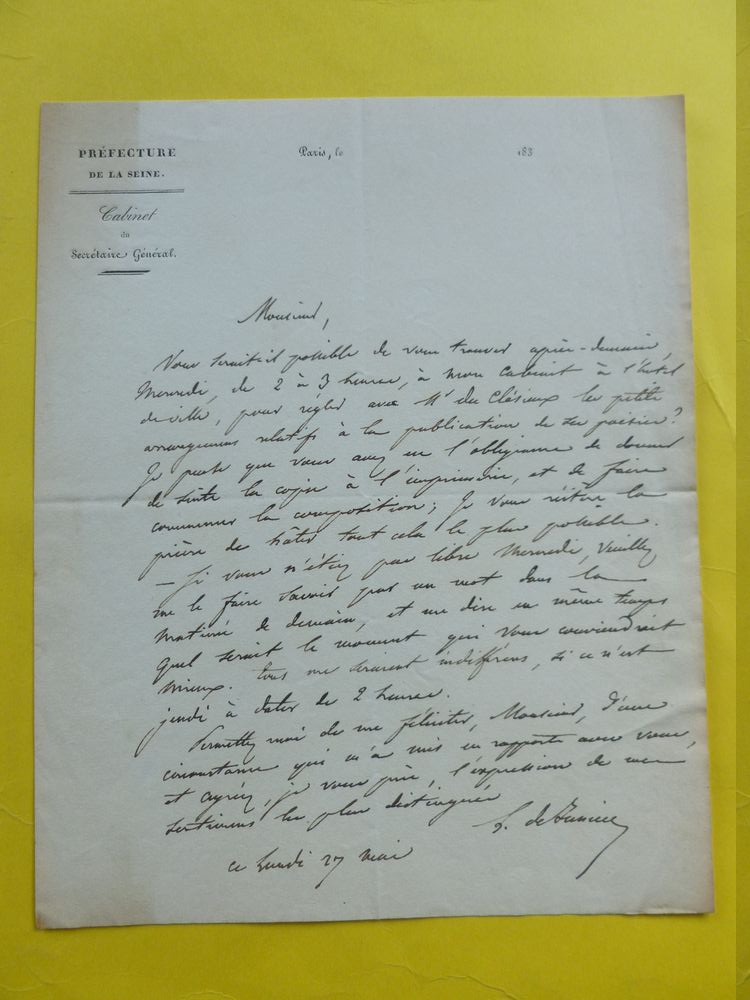 PRÉFECTURE
DE LA SEINE.
Cabinet
du
Secrétaire Général.
Paris, le 183
Monsieur,
Vous serait-il possible de vous trouver après-demain,
Mercredi, de 2 à 3 heures, à mon Cabinet à l'hôtel
de ville, pour régler avec Mr du Clésieux les petits
arrangemens relatifs à la publication de ses poësies?
Je pense que vous avez eu l'obligeance de donner
de suite la copie à l'imprimerie, et de faire
commencer la composition; Je vous réitère la
prière de hâter tout cela le plus possible.
— Si vous n'étiez pas libre Mercredi, veuillez
me le faire savoir par un mot dans la
matinée de demain, et me dire en même temps
quel serait le moment qui vous conviendrait
mieux. tous me seraient indifférens, si ce n'est
jeudi à dater de 2 heures.
Permettez moi de me féliciter, Monsieur, d'une
circonstance qui m'a mis en rapports avec vous,
et agréez, je vous prie, l'expression de mes
sentimens les plus distingués
ce Lundi 27 mai